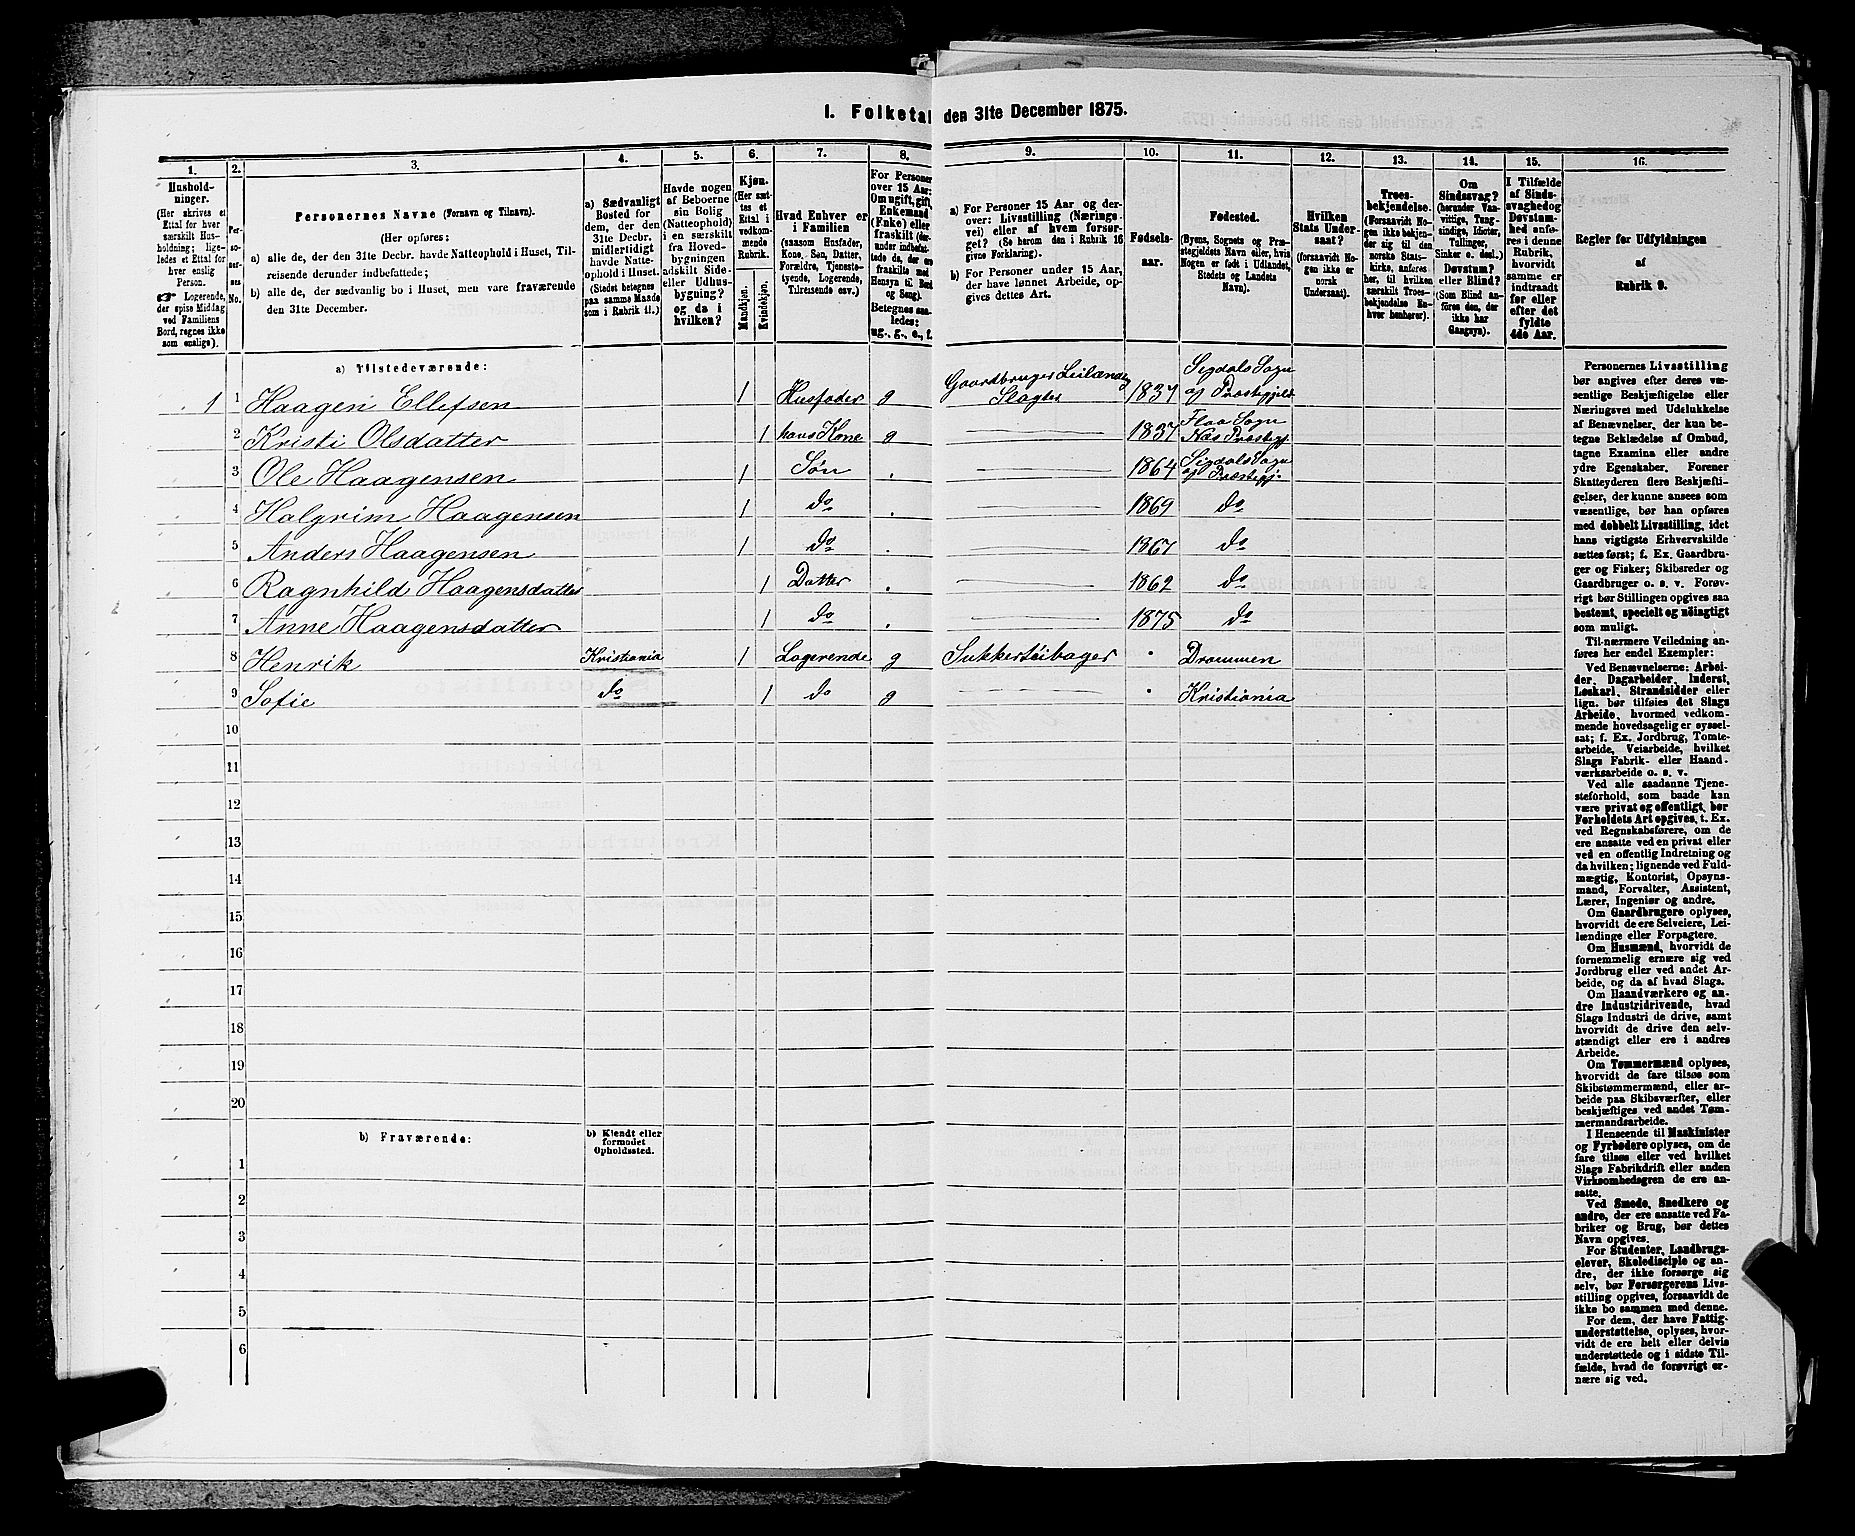 I. Folketal den 31te December 1875.
1. 2. 3. 4. 5. 6. 7. 8. 9. 10. 11. 12. 13. 14. 15. 16.
Hushold-
ninger.
(Her skrives et
Ettal for hver
særskilt Hus-
holdning; lige-
ledes et Ettal for
hver enslig
Person.
☞ Logerende,
der spise Middag
ved Familiens
Bord, regnes ikke
som enslige).
Per-
so-
ner-
nes
No.
Personernes Navne (Fornavn og Tilnavn).
(Her opføres:
a) alle de, der den 31te Decbr. havde Natteophold i Huset, Til-
reisende derunder indbefattede;
b) alle de, der sædvanlig bo i Huset, men vare fraværende
den 31te December.
a) Sædvanligt
Bosted for
dem, der den
31te Decbr.
midlertidigt
havde Natte-
ophold i Huset.
(Stedet betegnes
paa samme Maade
som i Rubrik 11.)
Havde nogen
af Beboerne
sin Bolig
(Natteophold)
i en særskilt
fra Hoved-
bygningen
adskilt Side-
eller Udhus-
bygning?
og da i
hvilken?
Kjøn.
(Her sæt-
tes et
Ettal i
vedkom-
mende
Rubrik.
Mandkjøn.
Kvindekjøn.
Hvad Enhver er
i Familien
(saasom Husfader,
Kone, Søn, Datter,
Forældre, Tjeneste-
tyende, Logerende,
Tilreisende osv.)
For Personer
over 15 Aar:
Om ugift, gift,
Enkemand
(Enke) eller
fraskilt
Betegnes saa-
ledes:
ug., g., e., f.
a) For Personer 15 Aar og der-
over: Livsstilling (Nærings-
vei) eller af hvem forsør-
get? (Se herom den i Rubrik 16
givne Forklaring).
b) For Personer under 15 Aar,
der have lønnet Arbeide, op-
gives dettes Art.
Fødsels-
aar.
Fødested.
(Byens, Sognets og Præ-
stegjeldets Navn eller, hvis
Nogen er født i Udlandet,
Stedets og Landets
Navn).
Hvilken
Stats Under-
saat?
(forsaavidt No-
gen ikke er
norsk
Undersaat).
Troes-
bekjendelse.
(Forsaavidt Nogen
ikke bekjen-
der sig til den
norske Stats-
kirke, anføres
her, til hvilken
særskilt Troes-
bekjendelse En-
hver henhører).
Om
Sindssvag?
(herunder Van-
vittige, Tung-
sindige, Idioter,
Tullinger,
Sinker o. desl.)
Døvstum?
eller Blind?
(Som Blind an-
føres den, der
ikke har
Gangsyn).
I Tilfælde
af Sinds-
svaghed og
Døvstum-
hed anfø-
res i denne
Rubrik,
hvorvidt
samme er
indtraadt
før eller
efter det
fyldte
4de Aar.
Regler for Udfyldningen
af
Rubrik 9.
a) Tilstedeværende:
1 1 Haagen Ellefsen 1 Husfader g Gaardbruger Leilænding Slagter 1837 Sigdals Sogn og Præstegjeld
2 Kristi Olsdatter 1 hans Kone g 1837 Flaa Sogn Næs Præstegj.
3 Ole Haagensen 1 Søn 1864 Sigdals Sogn og Præstegj.
4 Halgrim Haagensen 1 do 1869 do
5 Anders Haagensen 1 do 1867 do
6 Ragnhild Haagensdatter 1 Datter 1862 do
7 Anne Haagensdatter 1 do 1875 do
8 Henrik Kristiania 1 Logerende g Sukkertøibager Drammen
9 Sofie do 1 do g Kristiania
10
11
12
13
14
15
16
17
18
19
20
b) Fraværende:
b) Kjendt eller
formodet
Opholdssted.
1
2
3
4
5
6
Personernes Livsstilling
bør angives efter deres væ-
sentlige Beskjæftigelse eller
Næringsvei med Udelukkelse
af Benævnelser, der kun be-
tegne Beklædelse af Ombud,
tagne Examina eller andre
ydre Egenskaber. Forener
Skatteyderen flere Beskjæfti-
gelser, der kunne ansees som
væsentlige, bør han opføres
med dobbelt Livsstilling, idet
hans vigtigste Erhvervskilde
sættes først; f. Ex. Gaardbru-
ger og Fisker; Skibsreder og
Gaardbruger o. s. v. Forøv-
rigt bør Stillingen opgives saa
bestemt, specielt og nøiagtigt
som muligt.
Til nærmere Veiledning an-
føres her endel Exempler:
Ved Benævnelserne: Arbei-
der, Dagarbeider, Inderst,
Løskarl, Strandsidder eller
lign. bør tilføies det Slags
Arbeide, hvormed vedkom-
mende hovedsagelig er syssel-
sat; f. Ex. Jordbrug, Tomte-
arbeide, Veiarbeide, hvilket
Slags Fabrik- eller Haand-
værksarbeide o. s. v.
Ved alle saadanne Tjene-
steforhold, som baade kan
være privat og offentligt, bør
Forholdets Art opgives, t. Ex.
ved Regnskabsførere, om de
ere ansatte ved en privat eller
ved en offentlig Indretning og
da hvilken; lignende ved Fuld-
mægtig, Kontorist, Opsyns-
mand, Forvalter, Assistent,
Lærer, Ingeniør og andre.
Om Gaardbrugere oplyses,
hvorvidt de ere Selveiere, Lei-
lændinge eller Forpagtere.
Om Husmænd, hvorvidt de
fornemmelig ernære sig ved
Jordbrug eller ved andet Ar-
beide, og da af hvad Slags.
Om Haandværkere og an-
dre Industridrivende, hvad
Slags Industri de drive, samt
hvorvidt de drive den selv-
stændigt eller ere i andres
Arbeide.
Om Tømmermænd oplyses,
hvorvidt de fare tilsøs som
Skibstømmermænd, eller ar-
beide paa Skibsværfter, eller
beskjæftiges ved andet Tøm-
mermandsarbeide.
I Henseende til Maskinister
og Fyrbødere oplyses, om de
fare tilsøs eller ved hvilket
Slags Fabrikdrift eller anden
Virksomhedsgren de ere an-
satte.
Ved Smede, Snedkere og
andre, der ere ansatte ved Fa-
briker og Brug, bør dettes
Navn opgives.
For Studenter, Landbrugs-
elever, Skoledisciple og an-
dre, der ikke forsørge sig
selv, bør Forsørgerens Livs-
stilling opgives, forsaavidt de
ikke bo sammen med denne.
For dem, der have Fattig-
understøttelse, oplyses, hvor-
vidt de ere helt eller delvis
understøttede og i sidste Til-
fælde, hvad de forøvrigt er-
nære sig ved.